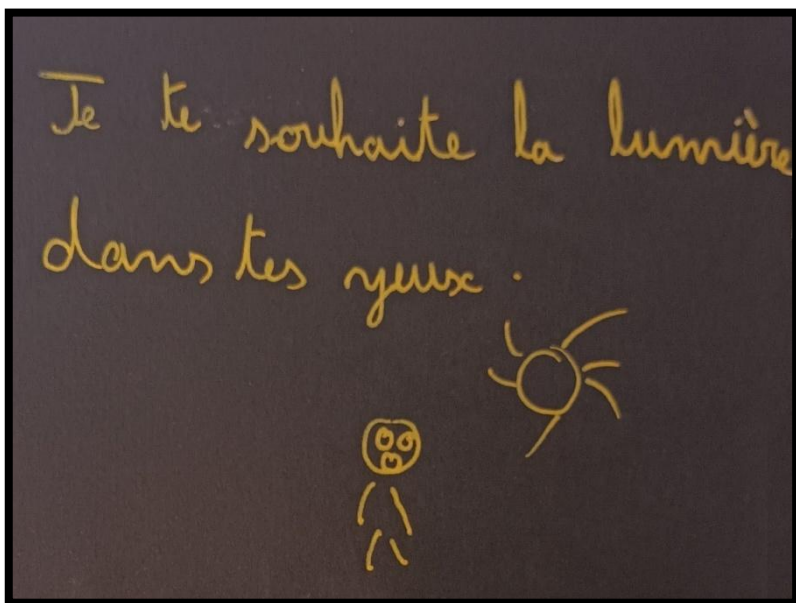 Je te souhaite la lumière
dans tes yeux.